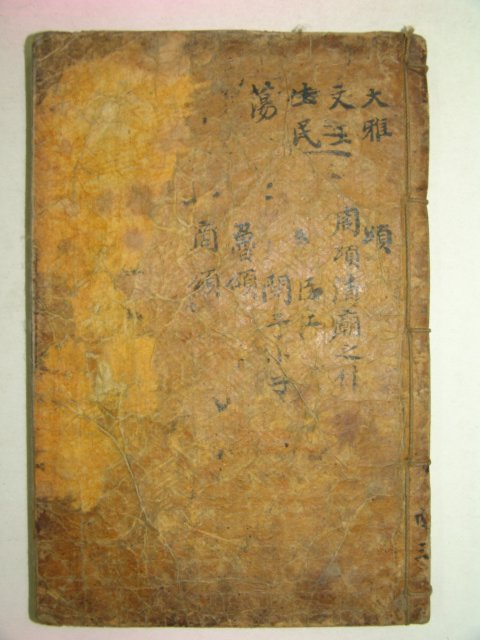 大雅
文王
生民
蕩
頌
周頌清廟之什
臣工
閔予小子
魯頌
商頌
三